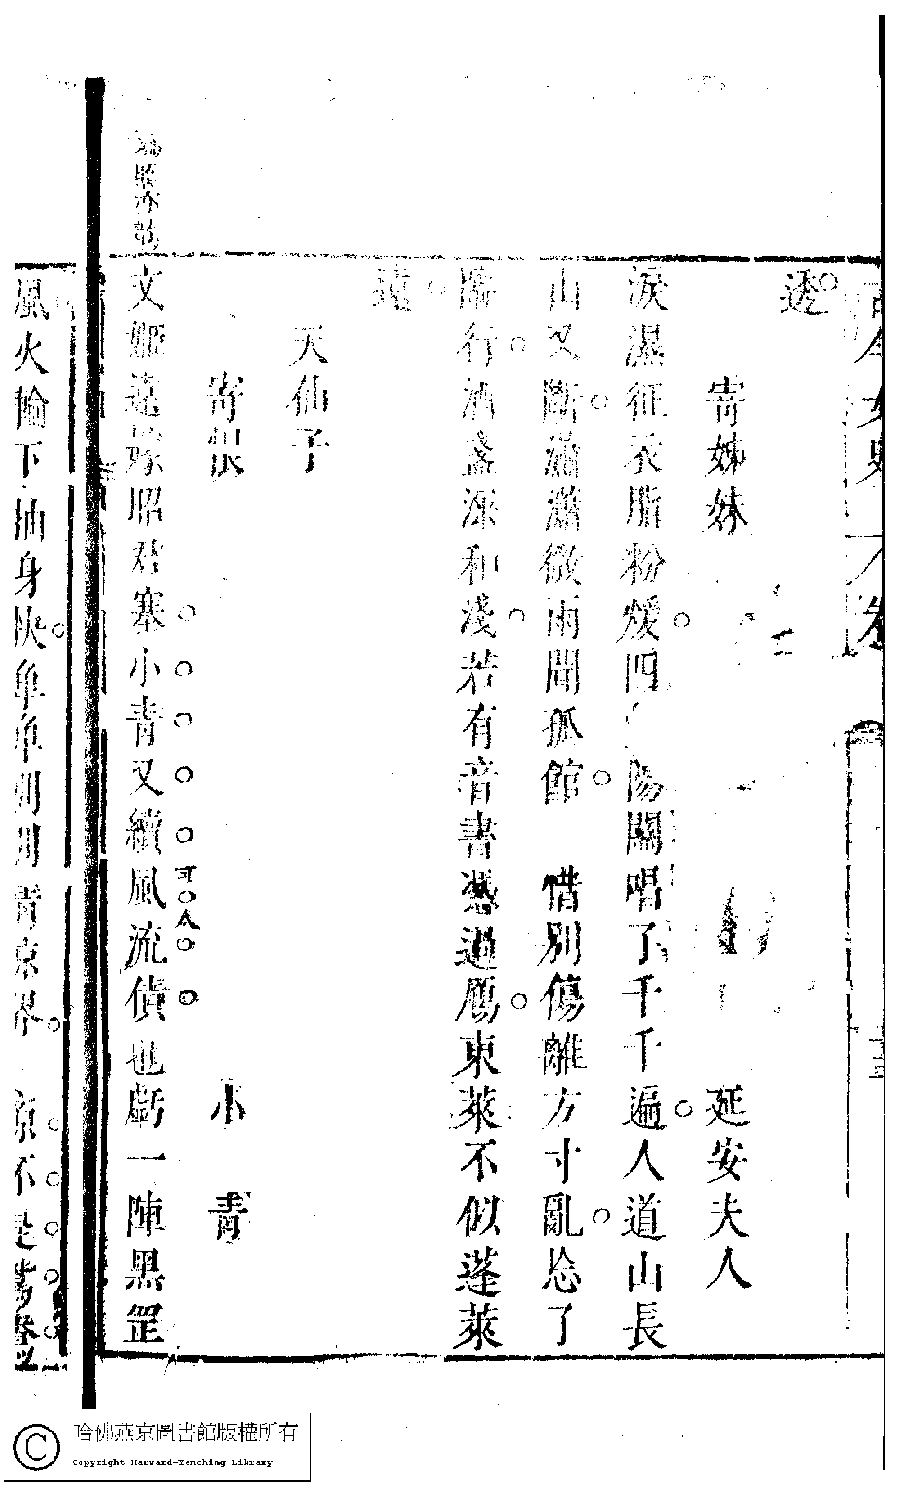 古今女史 六卷
透
寄姊妹 延安夫人
淚濕征衣脂粉煖四 陽關唱了千千遍人道山長
山又斷瀟瀟微雨聞孤館 惜別傷離方寸亂忘了
臨行酒盞深和淺若有音書憑過鴈東萊不似蓬萊
遠
天仙子
寄恨 小青
文姬遠嫁昭君塞小青又續風流債也虧一陣黑罡
風火輪下抽身快單單別別清涼界
哈佛燕京圖書館版權所有
Copyright Harvard-Yenching Library